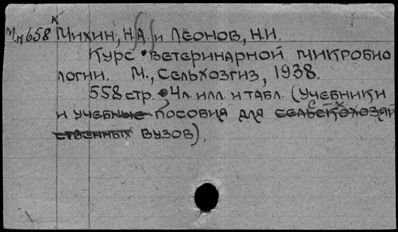 К
Мн658 Михин, Н.А. и Леонов, Н.И.
Курс ветеринарной микробио
логии. М., Сельхозгиз, 1938.
558 стр. 4 л. илл. и табл. (Учебники
и учебные пособия для сельскохозяй
ственных вузов).
с-х